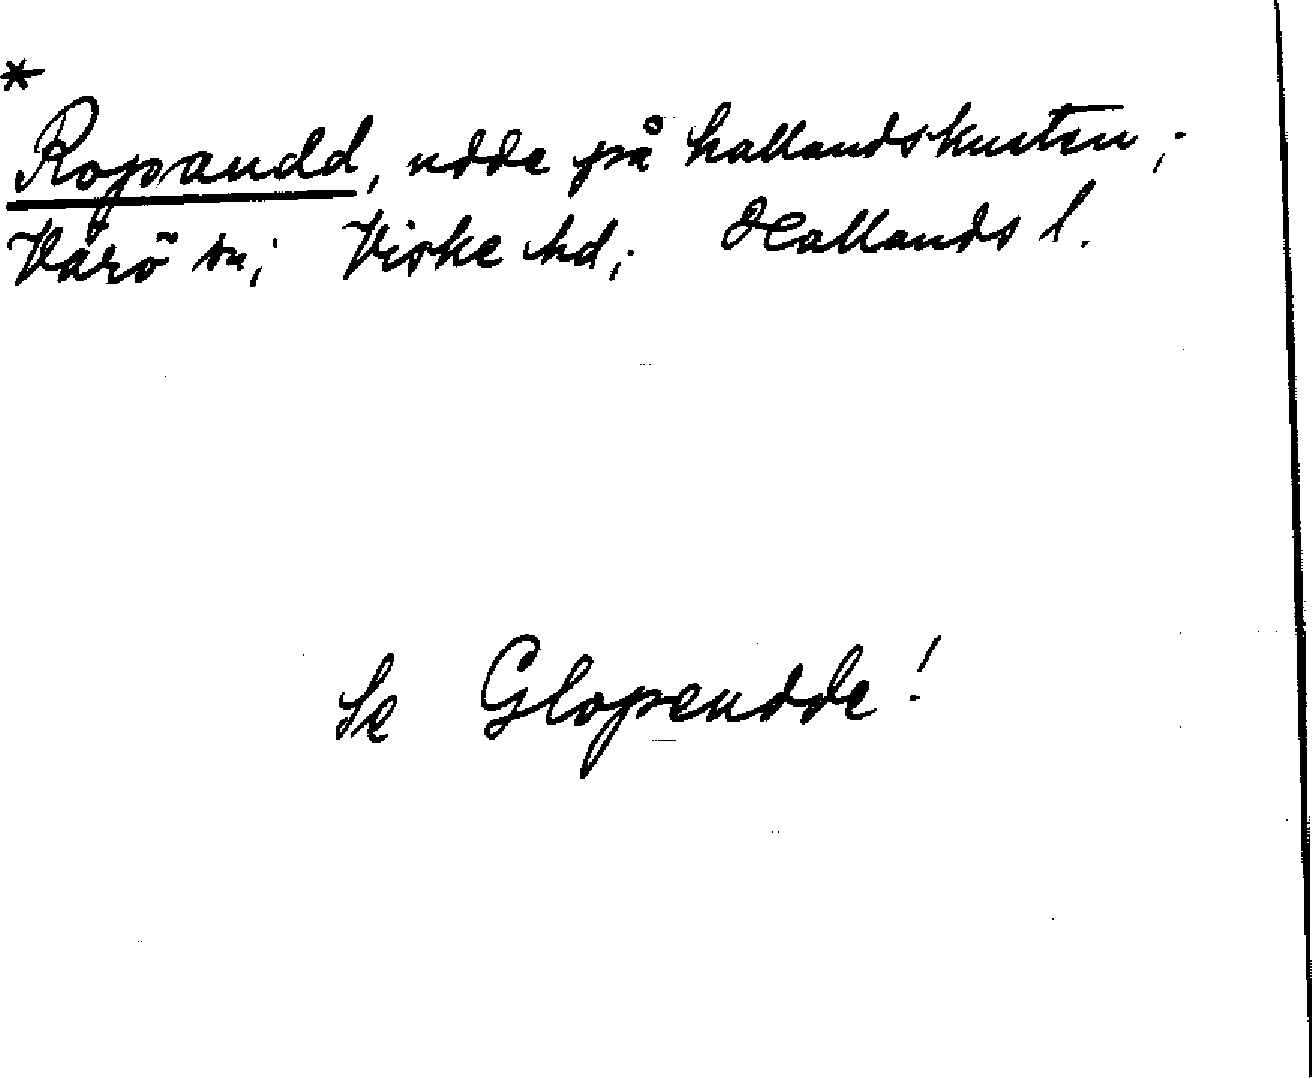 *
Ropaudd, udde på hallandskusten;
Värö sn; Viske hd; Hallands l.
Se Glopeudde!